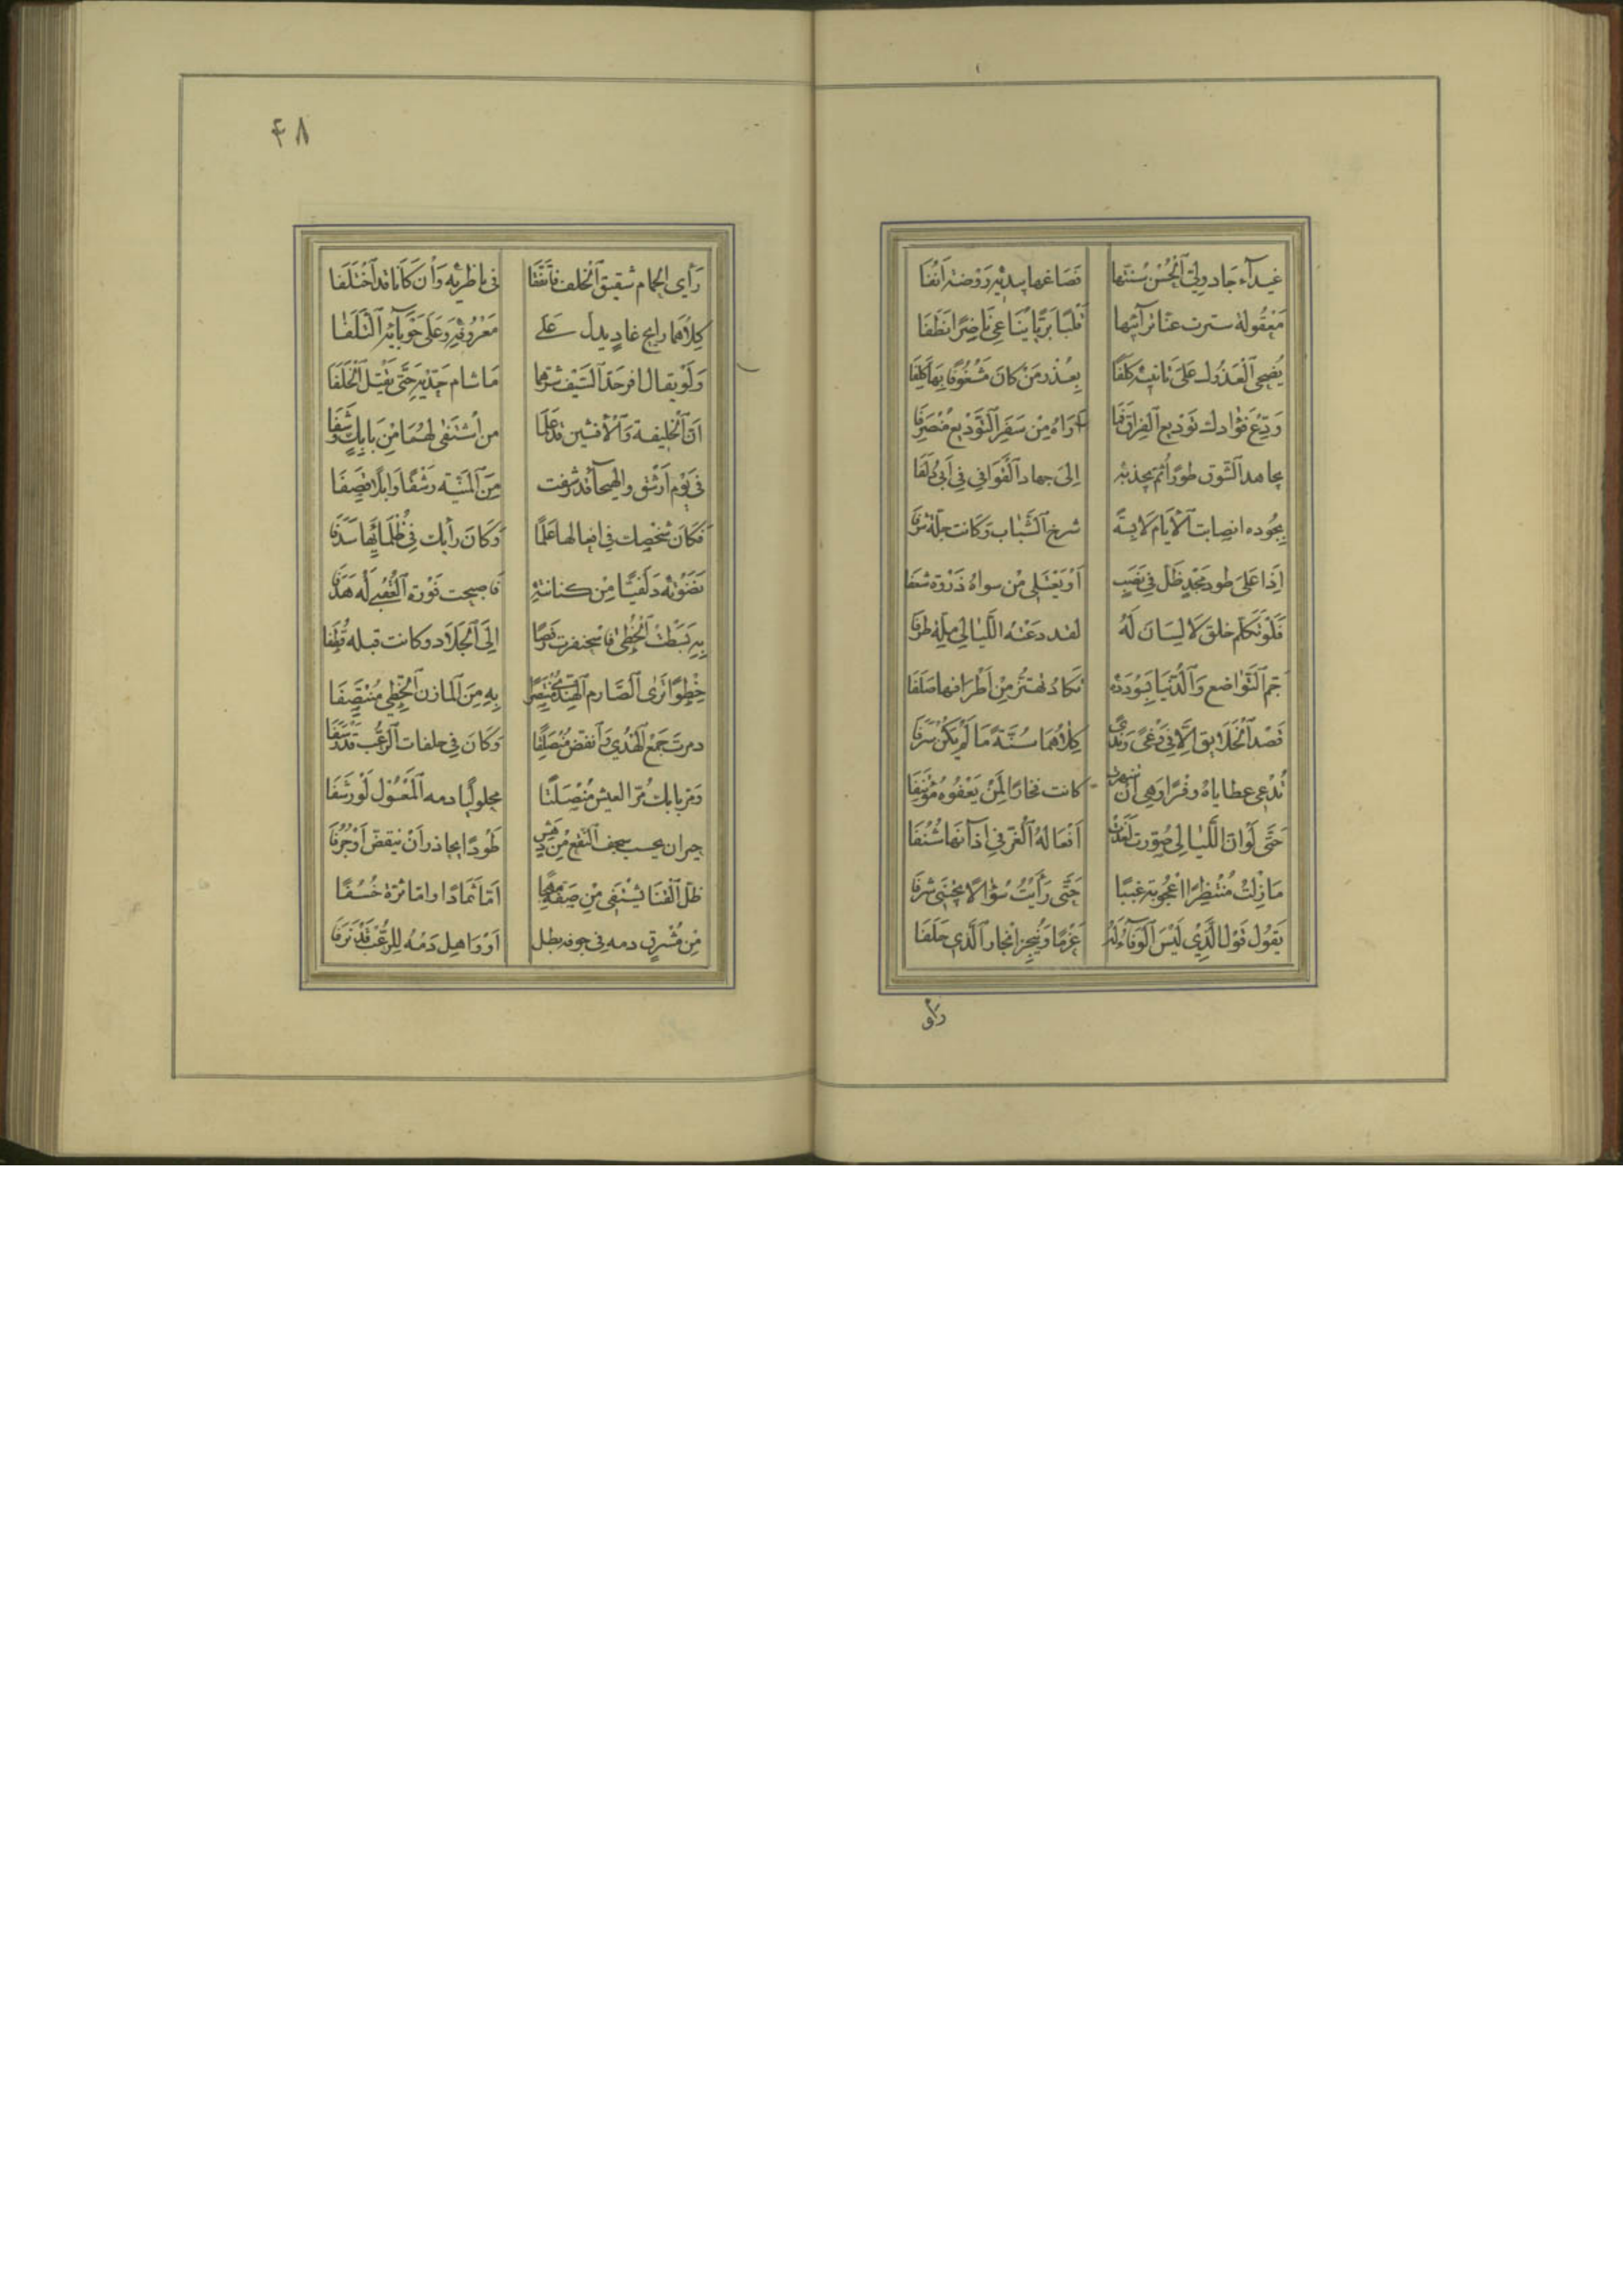 غيدآء جاد ولي الحسن سنتها فصاغها بيديه روضة انفا
معقولة سترت عنا ترآئبها قلبا بريا يناغي ناضرا نطفا
يضحي العذول على تانيبه كلفا بعذر من كان مشغوفا بها كلفا
ودع فؤادك توديع الفراق فما اراه من سفر التوديع منصرفا
يجاهد الشوق طورا ثم يجذبه الى جهاد القوافي في ابي دلفا
بجوده انصات الايام لابسة شرخ الشباب وكانت جلة شرفا
اذا على طود مجد ظل في نصب او يعتلي من سواه ذروة شعفا
فلو تكلم خلق لا لسان له لقد دعته الليالي ملة طرفا
جم التواضع والدنيا بسودده تكاد تهتز من اطرافها صلفا
قصد الخلايق الا في وغى وندى كلاهما سنة ما لم يكن سرفا
تدعى عطاياه وفرا وهي ان شهرت كانت فخارا لمن يعفوه مؤتنفا
حتى لو ان الليالي صورت لغدت افعاله الغر في اذآنها شنفا
ما زلت منتظرا اعجوبة عببا حتى رايت سؤالا يجتنى شرفا
يقول قول الذي ليس الوفاء له عزما وينجز انجاز الذي حلفا
راى
٤٨
رأى الحمام شقيق الخلف فاتفقا في ناظريه وان كانا قد اختلفا
كلاهما رايح غاد يدل على معروفه وعلى حوبآئه التلفا
ولو يقال اقر حد السيف شرهما ما شام حديه حتى يقتل الخلفا
ان الخليفة والافشين قد علما من اشتفى لهما من بابك وشفا
في يوم ارشق والهيجآ قد رشفت من المنية رشقا وابلا قصفا
فكان شخصك في اغفالها علما وكان رأيك في ظلمائها سدفا
نضوته دلفيا من كنانته فاصبحت فوزة العقبى له هدفا
به بسطت الخطى فاسحنفرت رقصا الى الجلاد وكانت قبله قطفا
خطوا ترى الصارم الهندي منتصرا به من المازن الخطي منتصفا
ذمرت جمع الهدى فانقض منصلتا وكان في حلقات الرعب قد رسفا
ومر بابك مر العيش منصلتا محلوليا دمه المعسول لو رشفا
حيران يحسب سجف النقع من دهش طودا يحاذر ان ينقض او جرفا
ظل القنا يستقي من صفه مهجا اما ثمادا واما ثرة خسفا
من مشرق دمه في جوفه بطل او واهل دمه للرعب قد نزفا